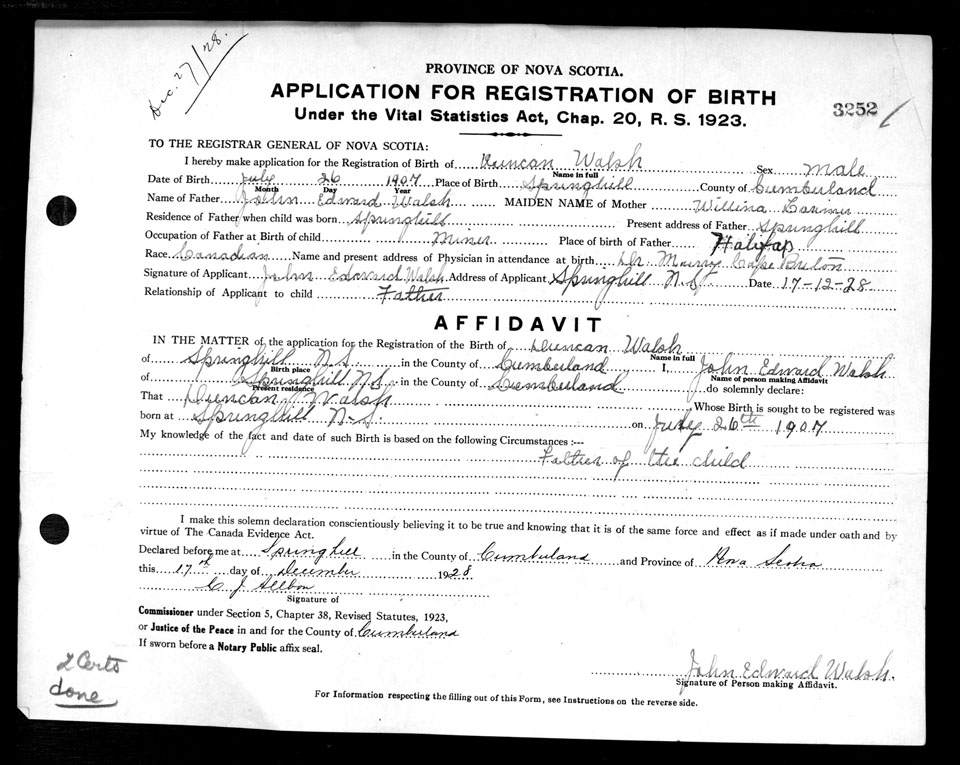 Dec. 27/28.
PROVINCE OF NOVA SCOTIA.
APPLICATION FOR REGISTRATION OF BIRTH
3252
Under the Vital Statistics Act, Chap. 20, R. S. 1923.
TO THE REGISTRAR GENERAL OF NOVA SCOTIA:
I hereby make application for the Registration of Birth of Duncan Walsh Sex Male
Name in full
Date of Birth July 26 1907 Place of Birth Springhill County of Cumberland
Month Day Year
Name of Father John Edward Walsh MAIDEN NAME of Mother Willina
Residence of Father when child was born Springhill Present address of Father Springhill
Occupation of Father at Birth of child Miner Place of birth of Father Halifax
Race Canadian Name and present address of Physician in attendance at birth Dr. Murry Cape Breton
Signature of Applicant John Edward Walsh Address of Applicant Springhill N.S. Date 17-12-28
Relationship of Applicant to child Father
AFFIDAVIT
IN THE MATTER of the application for the Registration of the Birth of Duncan Walsh
Name in full
of Springhill N.S. in the County of Cumberland I, John Edward Walsh
Birth place Name of person making Affidavit
of Springhill N.S. in the County of Cumberland do solemnly declare:
Present residence
That Duncan Walsh Whose Birth is sought to be registered was
born at Springhill N.S. on July 26th 1907
My knowledge of the fact and date of such Birth is based on the following Circumstances :—
Father of the child
I make this solemn declaration conscientiously believing it to be true and knowing that it is of the same force and effect as if made under oath and by
virtue of The Canada Evidence Act.
Declared before me at Springhill in the County of Cumberland and Province of Nova Scotia
this 17th day of December 1928
C J
Signature of
Commissioner under Section 5, Chapter 38, Revised Statutes, 1923,
or Justice of the Peace in and for the County of Cumberland
If sworn before a Notary Public affix seal.
2 Certs
done
John Edward Walsh.
Signature of Person making Affidavit.
For Information respecting the filling out of this Form, see Instructions on the reverse side.